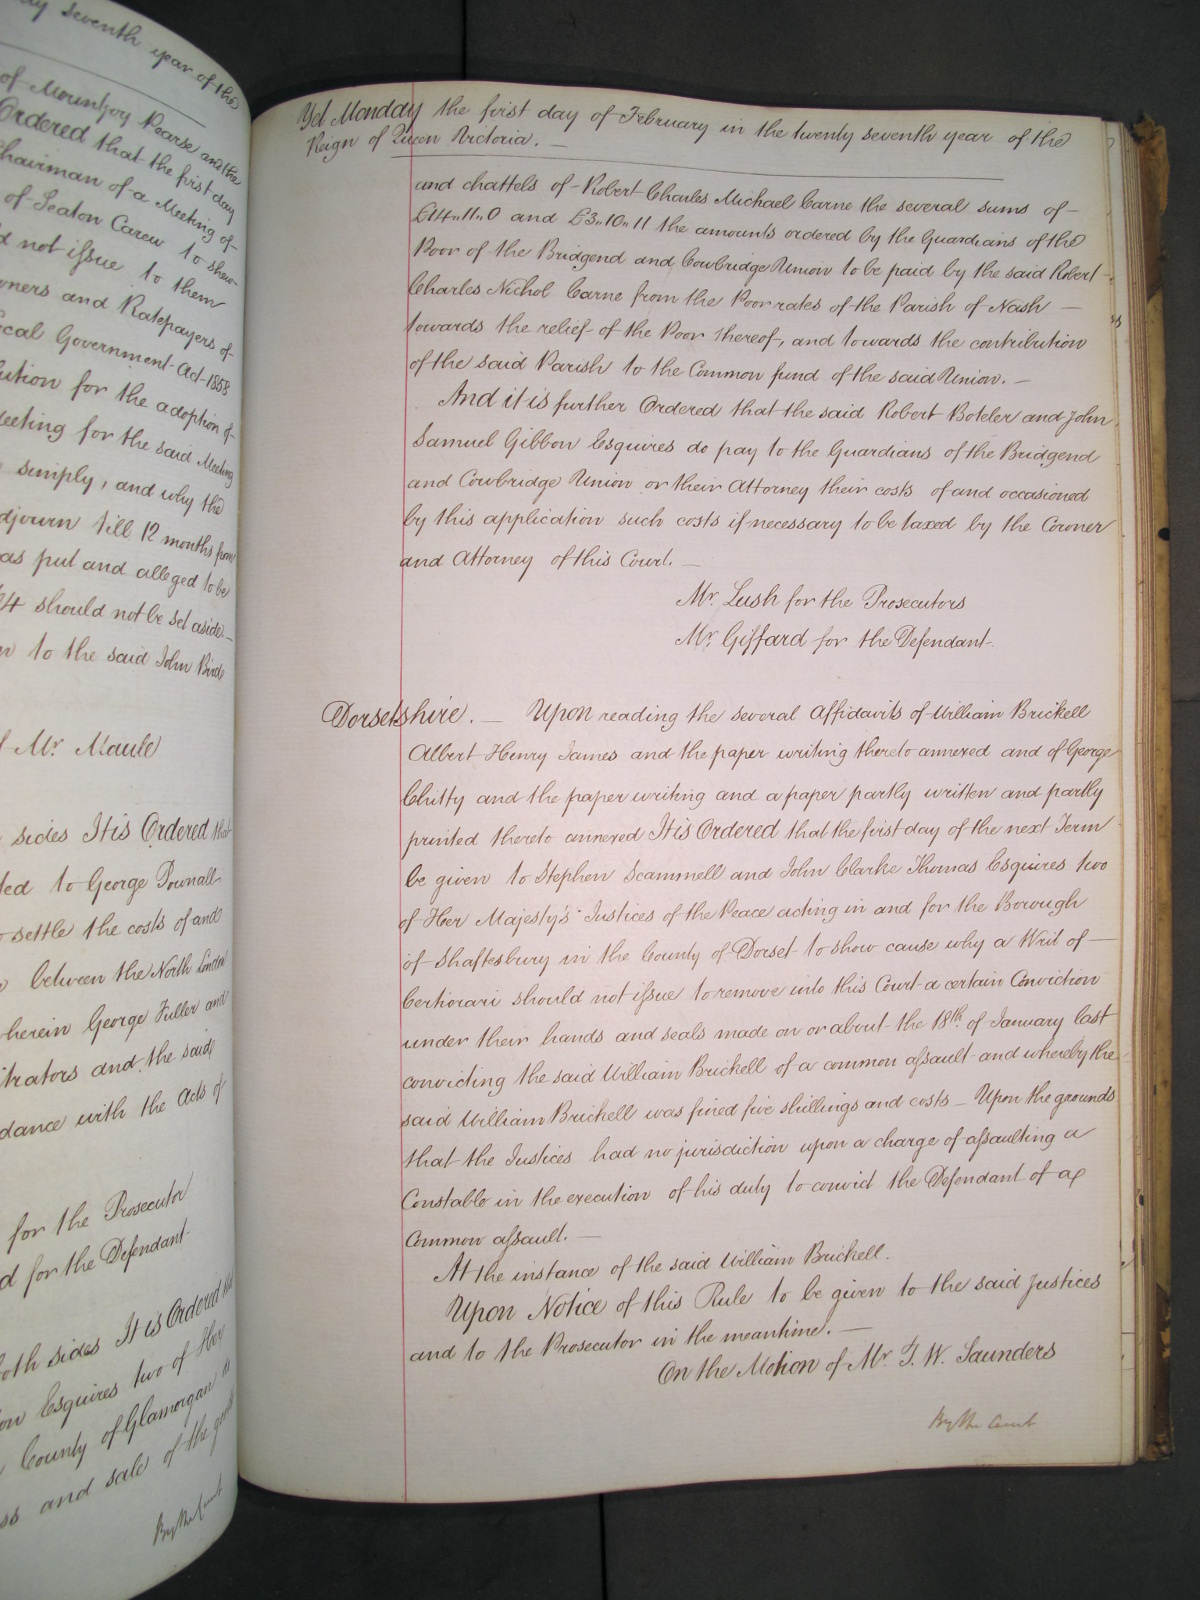 day seventh year of the
of Mountjoy Pearse and the
Ordered that the first day
Chairman of a Meeting of
of Seaton Carew to shew
d not issue to them
wners and Ratepayers of
ocal Government Act 1858
lution for the adoption of
Meeting for the said Meeting
simply, and why the
djourn till 12 months from
as put and alleged to be
should not be set aside
n to the said John Bird
Mr. Maule
sides It is Ordered that
ted to George Pownall
o settle the costs of and
between the North London
herein George Fuller and
itrators and the said
dance with the Acts of
for the Prosecutor
d for the Defendant
both sides It is Ordered that
on Esquires two of Her
County of Glamorgan
ss and sale of the goods
By the Court
Yet Monday the first day of February in the twenty seventh year of the
Reign of Queen Victoria. —
and chattels of Robert Charles Michael Carne the several sums of
£14..11..0 and £3..10..11 the amounts ordered by the Guardians of the
Poor of the Bridgend and Cowbridge Union to be paid by the said Robert
Charles Nichol Carne from the Poor rates of the Parish of Nash —
towards the relief of the Poor thereof, and towards the contribution
of the said Parish to the Common fund of the said Union. —
And it is further Ordered that the said Robert Boteler and John
Samuel Gibbon Esquires do pay to the Guardians of the Bridgend
and Cowbridge Union or their Attorney their costs of and occasioned
by this application such costs if necessary to be taxed by the Coroner
and Attorney of this Court. —
Mr. Lush for the Prosecutors
Mr. Giffard for the Defendant.
Dorsetshire. — Upon reading the several Affidavits of William Brickell
Albert Henry James and the paper writing thereto annexed and of George
Chitty and the paper writing and a paper partly written and partly
printed thereto annexed It is Ordered that the first day of the next Term
be given to Stephen Scammell and John Clarke Thomas Esquires two
of Her Majesty's Justices of the Peace acting in and for the Borough
of Shaftesbury in the County of Dorset to show cause why a Writ of —
Certiorari should not issue to remove into this Court a certain Conviction
under their hands and seals made on or about the 18th. of January last
convicting the said William Brickell of a common assault and whereby the
said William Brickell was fined five shillings and costs — Upon the grounds
that the Justices had no jurisdiction upon a charge of assaulting a
Constable in the execution of his duty to convict the Defendant of a
Common assault. —
At the instance of the said William Brickell.
Upon Notice of this Rule to be given to the said Justices
and to the Prosecutor in the meantime. —
On the Motion of Mr. T. W. Saunders
By the Court